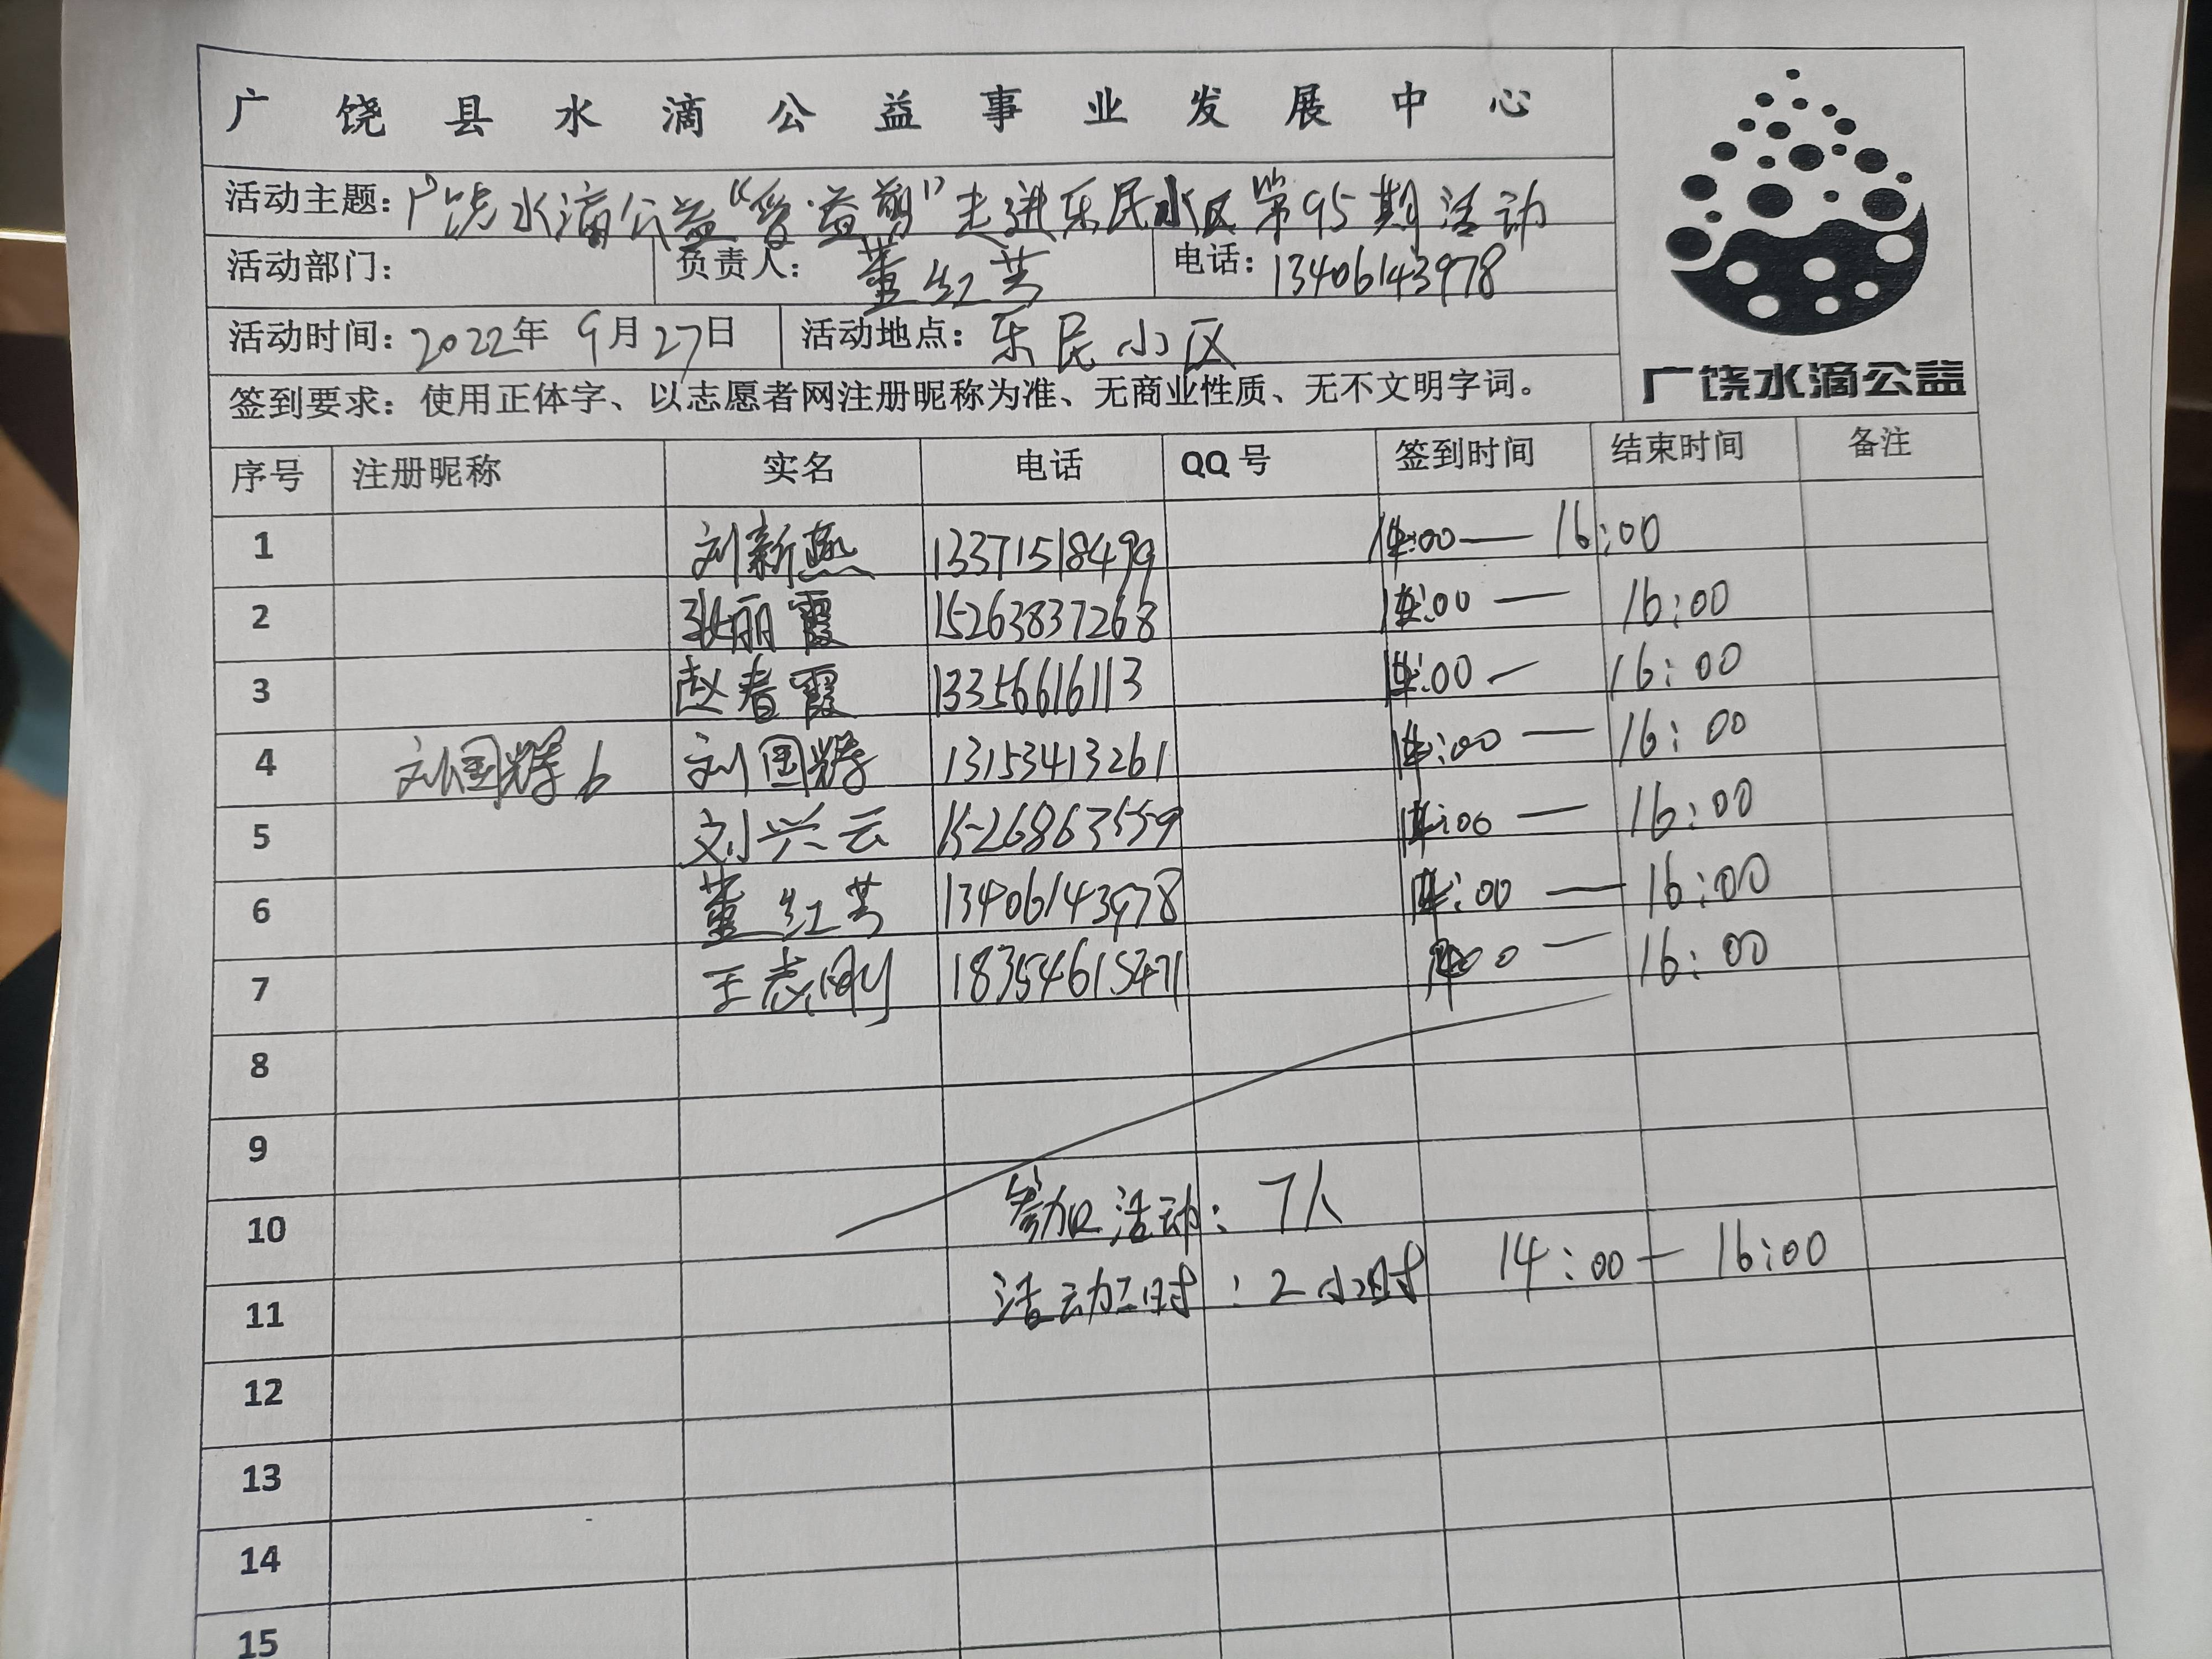 广饶县水滴公益事业发展中心
活动主题：广饶水滴公益“爱·益剪”走进乐民小区第95期活动
活动部门： 负责人：董红芸 电话：13406143978
活动时间：2022年9月27日 活动地点：乐民小区
签到要求：使用正体字、以志愿者网注册昵称为准、无商业性质、无不文明字词。
广饶水滴公益
序号 注册昵称 实名 电话 QQ号 签到时间 结束时间 备注
1 刘新燕 13371518499 14:00— 16:00
2 张丽霞 15263837268 14:00— 16:00
3 赵春霞 13356616113 14:00— 16:00
4 刘国辉6 刘国辉 13153413261 14:00— 16:00
5 刘兴云 15268635559 14:00— 16:00
6 董红芸 13406143978 14:00— 16:00
7 王志刚 18354615471 14:00— 16:00
8
9
10 参加活动：7人
11 活动工时：2小时 14:00—16:00
12
13
14
15